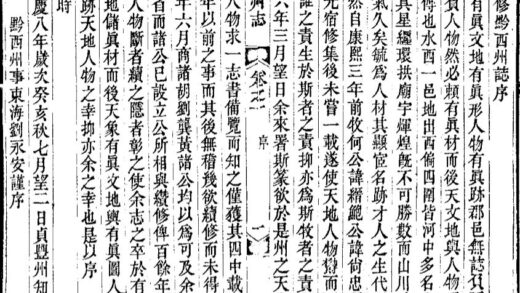 修黔西州誌序
有眞文地有眞形人物有眞跡郡邑無誌負
負人物然必賴有眞材而後天文地輿人物
傳也水西一邑地出西偏四圍皆河中多名
其星纒環拱廟宇輝煌旣不可勝數而山川
氣久矣毓爲人材其顯宦名跡才人之生代
然自康熙三年前牧何公諱鮑公諱尙忠
光宿修集後未嘗一載遂使天地人物而
誰之責生於斯者之責抑亦爲斯牧者之責
六年三月望日余來署斯篆欲於是州之天
州志
卷之
序
一
人物求一志書備覽而知之僅獲其四中載
年以前之事而其後無稽幾欲續修而未得
年六月商諸胡劉龔黃諸公均以爲可及余
省而諸公已設立公所相與續修稗百餘年
人物斷者續之隱者彰之使余志之卒於有
地儲眞材而後天象有眞文地輿有眞圖人
跡天地人物之幸抑亦余之幸也是以序
時
慶八年歲次癸亥秋七月望二日貞豐州知
黔西州事東海劉永安謹序